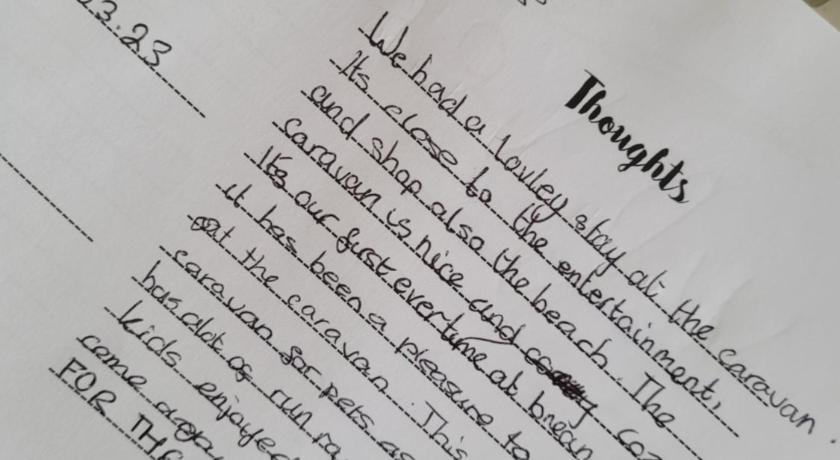 3.23
Thoughts
We had a lovley stay at the caravan.
Its close to the entertainment,
and shop also the beach. The
caravan is nice and
Its our first ever time at brean
it has been a pleasure to
at the caravan. This
caravan for pets as
has alot of run
kids enjoyed
come again
FOR THE